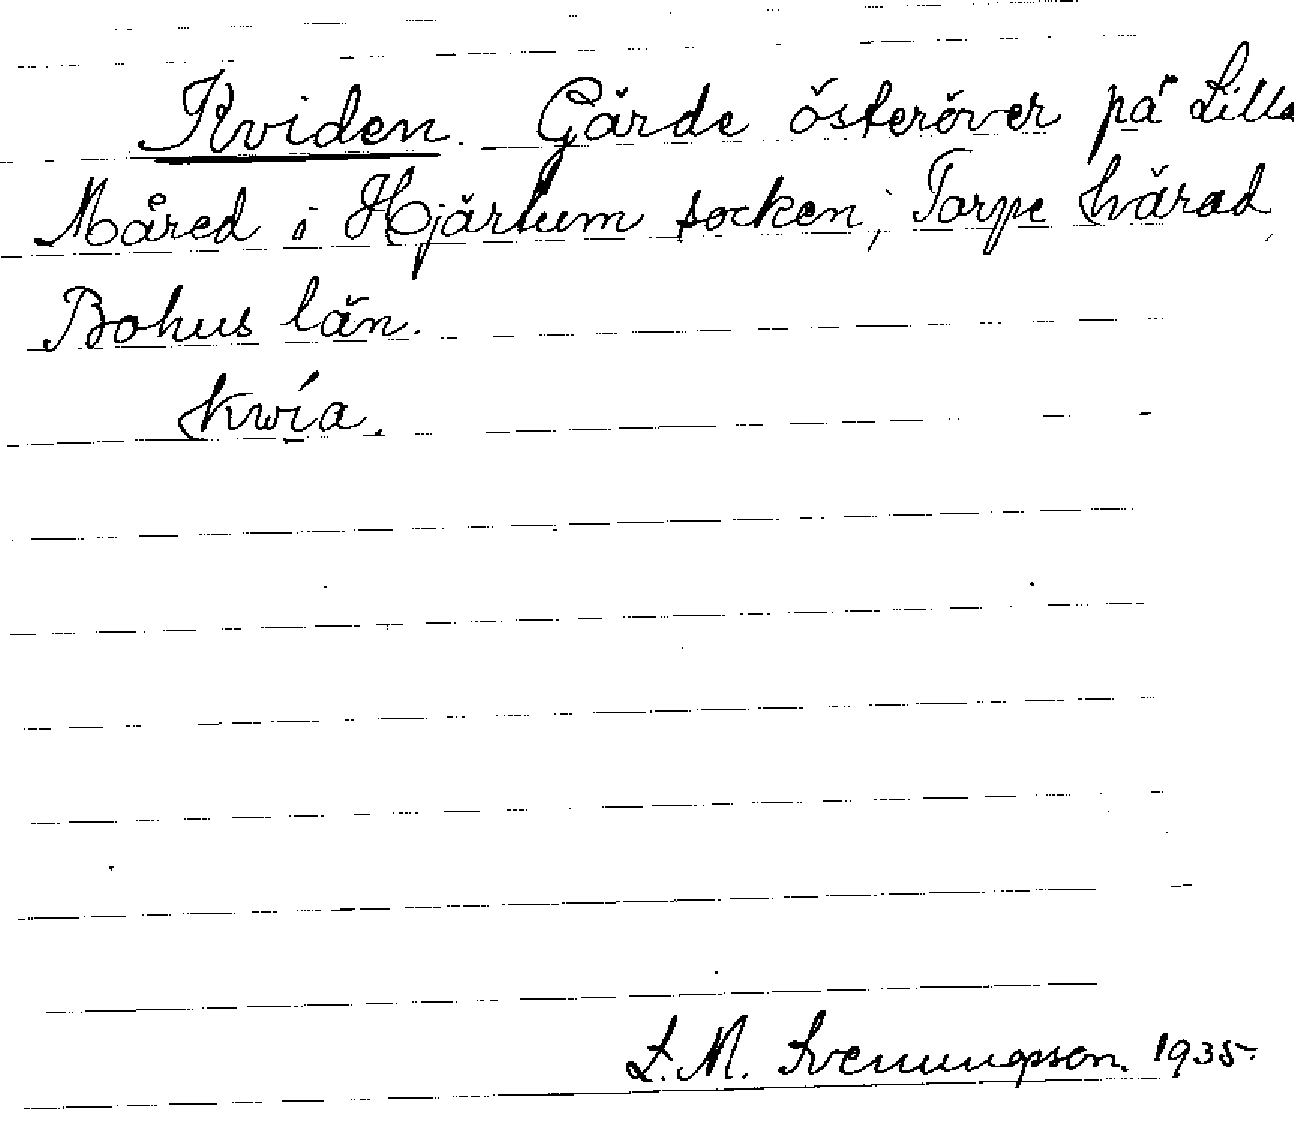 Kviden. Gärde österöver på Lilla
Måred i Hjärtum socken, Torpe härad,
Bohus län.
kwía.
L. M. Svenungsson. 1935.